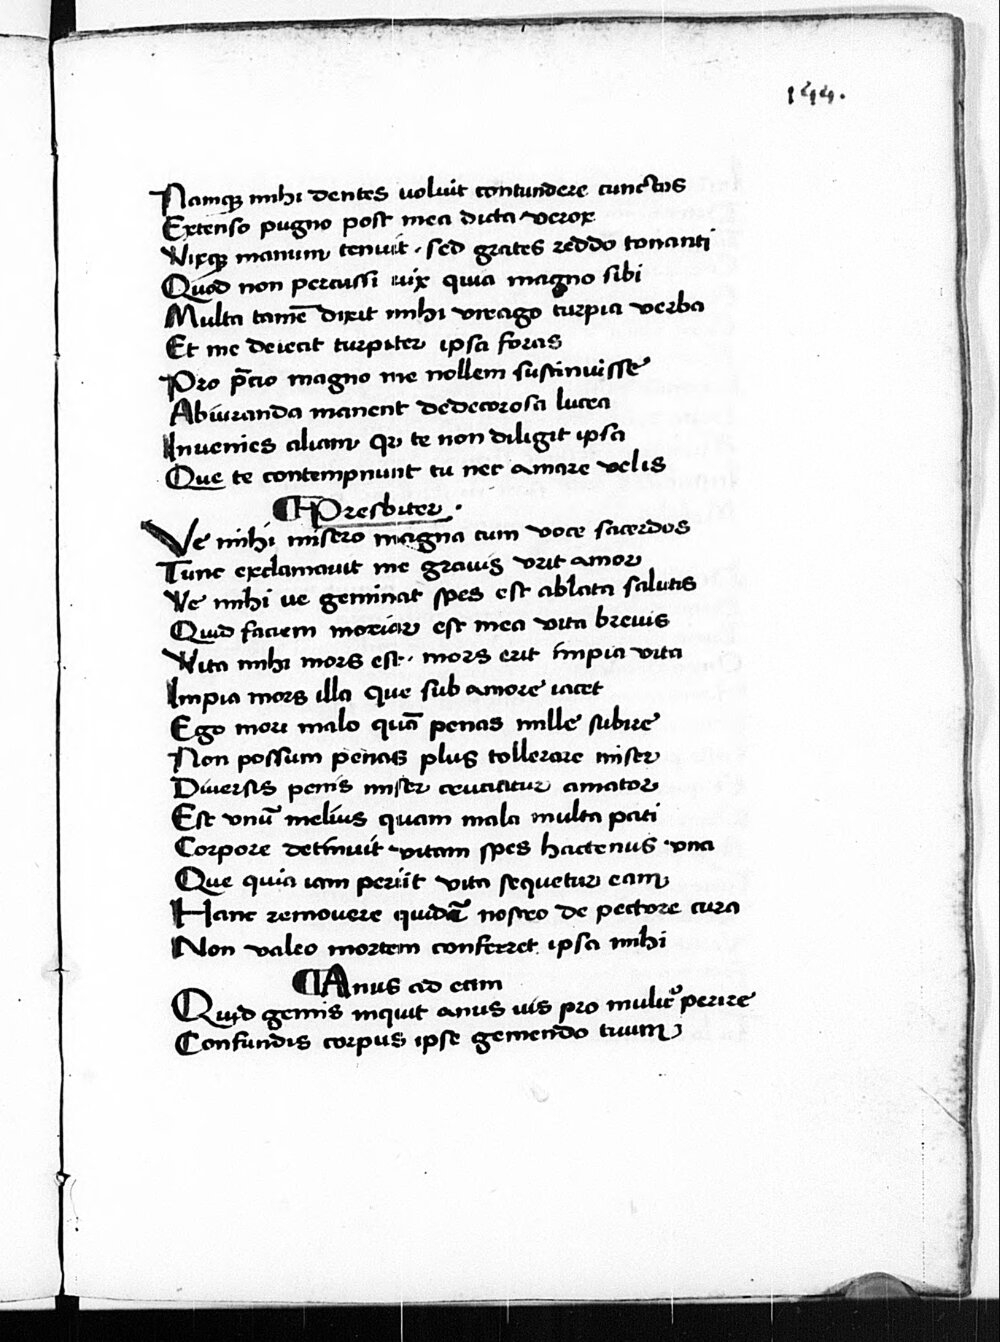 144.
Namqꝫ mihi dentes uoluit contundere cunctos
Extenso pugno post mea dicta veror
Vixqꝫ manum tenuit · sed grates reddo tonanti
Quod non percussi uix quia magno sibi
Multa tamē dixit mihi virago turpia verba
Et me deiecit turpiter ipsa foras
Pro p̄cio magno me nollem sustinuisse
Abiuranda manent dedecorosa lucra
Inuenies aliam qr te non diligit ipsa
Que te contempnunt tu nec amare velis
¶ Presbiter ·
Ve mihi misero magna cum voce sacerdos
Tunc exclamauit me grauis vrit amor
Ve mihi ue geminat spes est ablata salutis
Quid faciem moriar est mea vita breuis
Vita mihi mors est · mors erit impia vita
Impia mors illa que sub amore iacet
Ego mori malo quā penas mille subire
Non possum penas plus tollerare miser
Diuersis penis miser cruciatur amator
Est vnū melius quam mala multa pati
Corpore detinuit vitam spes hactenus vna
Que quia iam periit vita sequetur eam
Hanc remouere quidē nostro de pectore cura
Non valeo mortem conferret ipsa mihi
¶ Anus ad eum
Quid gemis inquit anus uis pro muliere perire
Confundis corpus ipse gemendo tuum